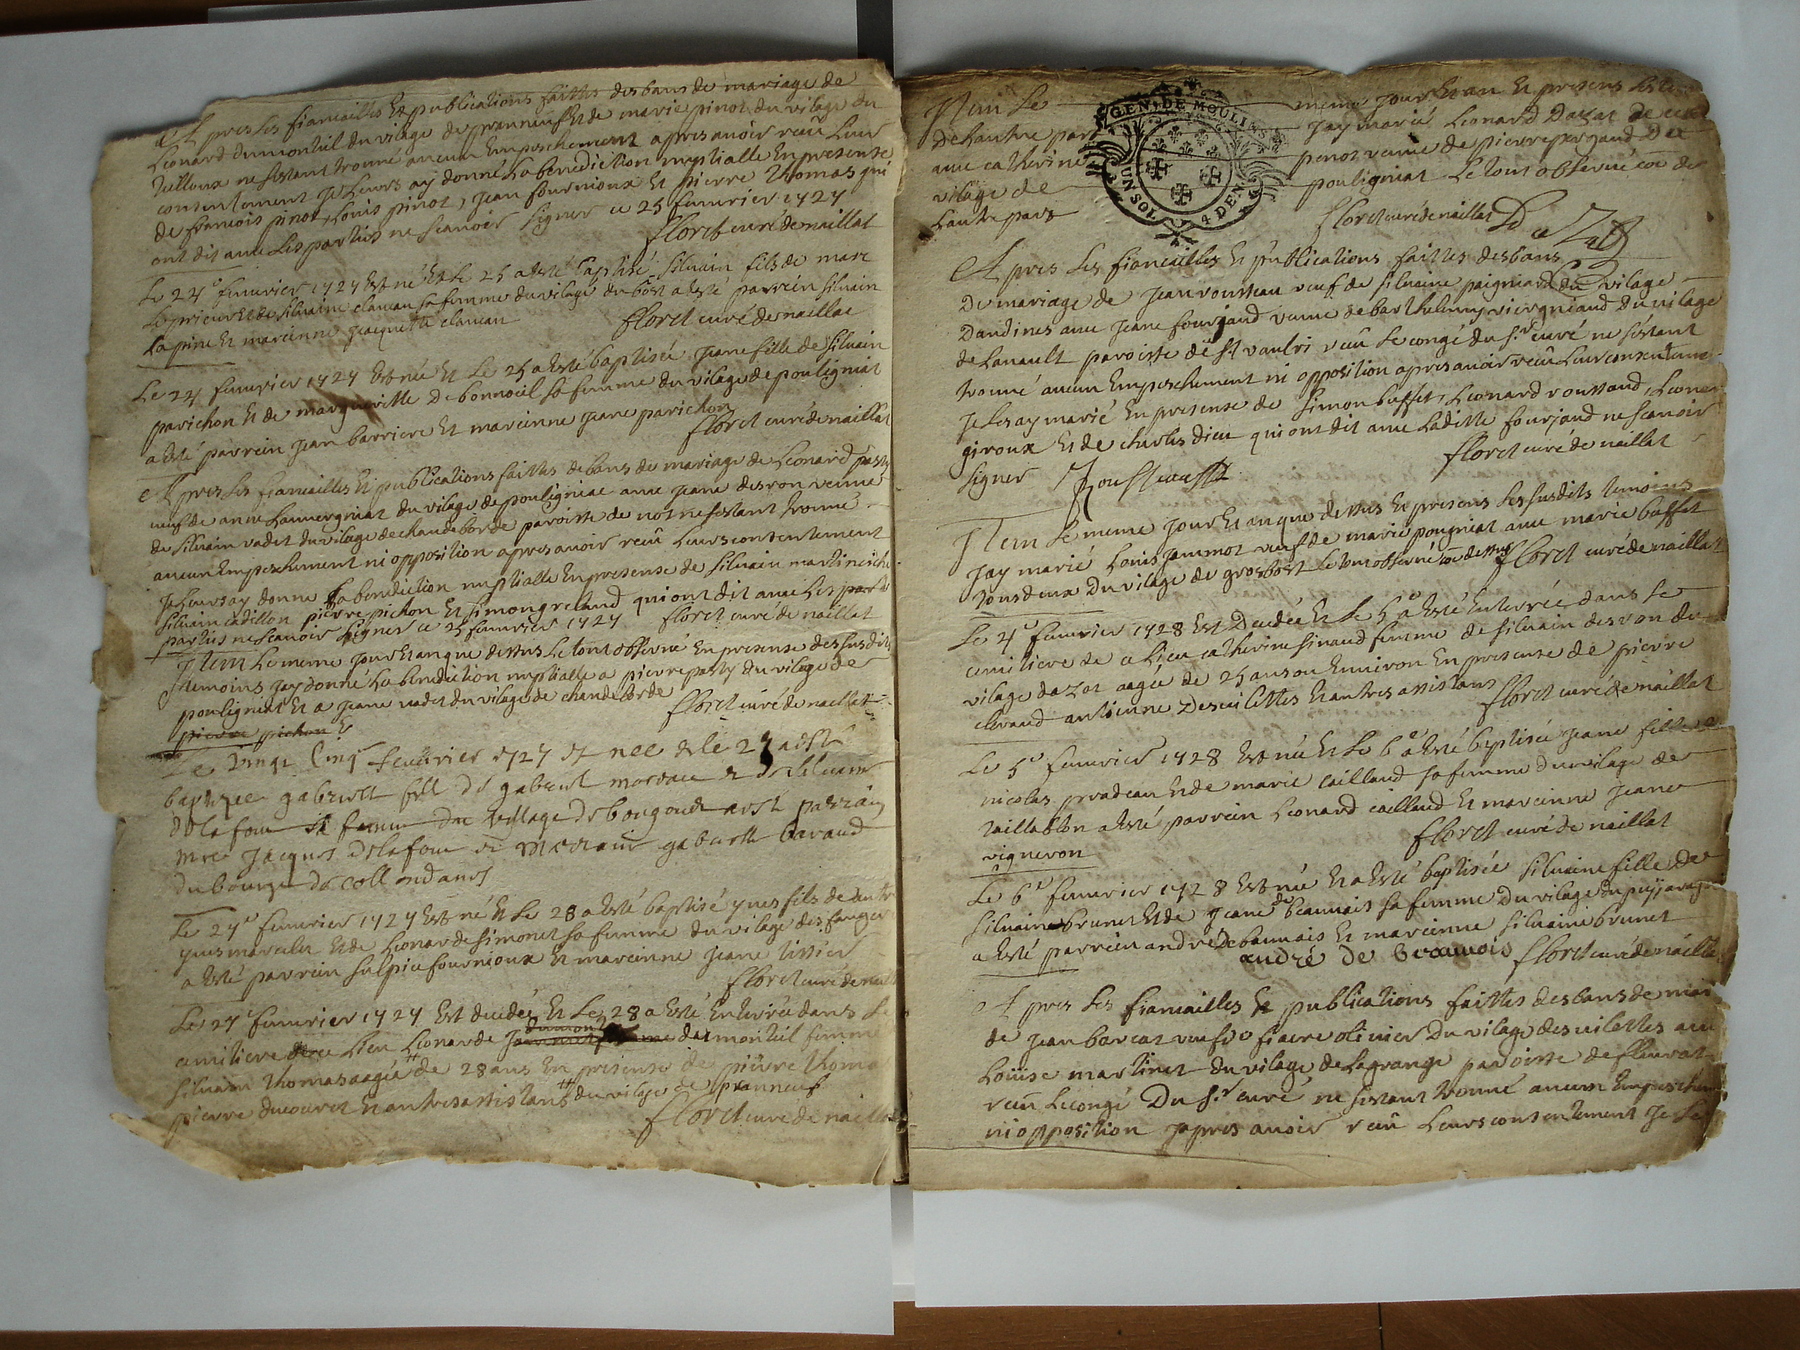 Apres les fiancailles Et publications faittes des bans de mariage de
Leonard dumontuil du vilage de pranneuf Et de marie pinot du vilage du
ne sestant trouvé aucun Empeschement apres avoir recû Leur
contentement Je Leurs ay donné La benediction nuptialle En presense
de francois pinot, Louis pinot, jean fournioux Et pierre Thomas qui
ont dit avec Les parties ne scavoir signer ce 25 fevurier 1727
floret curé de naillat
Le 24e fevurier 1727 Est né Et Le 25 a Esté baptisé silvain fils de marc
Leprieur Et de silvaine clavau sa femme du vilage du bost a Esté parrein silvain
Lapine Et marienne jacquette clavau
floret curé de naillac
Le 24 fevurier 1727 Est née Et Le 25 a Esté baptisée jeane fille de silvain
parichon Et de margueritte debonnoeil sa femme du vilage de pouligniat
a Esté parrein jean barriere Et marienne jeane parichon
floret curé de naillat
Apres Les fiancailles Et publications faittes de bans de mariage de Leonard pasty
veuf de anne Lauvergniat du vilage de pouligniac avec jeane desron veuve
de silvain vadet du vilage de chaudeborde paroisse de not ne sestant trouvé
aucun Empeschement ni opposition apres avoir recû Leurs contentement
Je Leurs ay donné La benediction nuptialle En presense de silvain
silvain cadillon pierre pichon Et simon greland qui ont dit avec Les
parties ne scavoir signer ce 25 fevurier 1727 floret curé de naillat
Item Le meme jour Et an que dessus Le tout observé En presense des susdits
temoins Jay donné La benediction nuptialle a pierre pasty du vilage de
pouligniat Et a jeane vadet du vilage de chaudeborde
floret curé de naillat
pierre pichon
Le vingt cinq fevurier 1727 Et nee Et le 27 a esté
baptizee gabriele fille de gabriel moreau et de silvaine
delafour sa femme du village de bougoudr a esté parrain
mre jacques delafour et mareine gabrielle baraud
du bourg de collondanes
Le 27e fevurier 1727 Est né Et Le 28 a Esté baptisé yves fils de
yves marculet Et de Leonarde simonet sa femme du vilage des fouger
a Esté parrein sulpice fournioux Et marienne jeane tissier
floret curé de
Le 27e fevurier 1727 Est decedée Et Le 28 a Esté Enterrée dans Le
cemitiere de ce Lieu Leonarde dumontuil femme
silvain thomas aagée de 28 ans En presense de pierre thoma
pierre ducouret Et autres assistans du vilage de pranneuf
floret curé de naillat
GEN. DE MOULINS
UN SOL 4 DEN.
Item Le meme jour Et an Et presens
De Lautre part Jay marié Leonard Dazat
avec catherine pinot veuve de pierre
vilage de pouligniat Le tout observé coe de
Lautre part
floret curé de naillat
Apres Les fiancailles Et publications faittes des bans
De mariage de jean rousseau veuf de silvaine paigniard du vilage
Dandines avec jeane fourgaud veuve de barthelemy viergniaud du vilage
de Lavault paroisse de st vaulri veû Le congé du sr curé ne sestant
trouvé aucun Empeschement ni opposition apres avoir recû Leur consentemen
Je Les ay marié En presense de simon buffet, Leonard roussaud, Leonar
giroux Et de charles dieu qui ont dit avec Laditte fourjaud ne scavoir
signer
floret curé de naillat
Item Le meme jour Et an que dessus Et presens Les susdits temoins
Jay marié Louis jammot veuf de marie pougniat avec marie buffet
tous deux du vilage de grosbost Le tout observé coe dessus floret curé de naillat
Le 4e fevurier 1728 Est Decedée Et Le 5e a Esté Enterrée dans Le
cemitiere de ce Lieu catherine sinaud femme de silvain desron du
vilage dazat aagée de 25 ans ou Environ En presense de pierre
claraud antoienne Desvilettes Et autres assistans floret curé de naillat
Le 5e fevurier 1728 Est née Et Le 6e a Esté baptisée jeane fille
nicolas pradeau Et de marie caillaud sa femme du vilage de
taillablon a Esté parrein Leonard caillaud Et marienne jeane
vigneron
floret curé de naillat
Le 6e fevurier 1728 Est née Et a Esté baptisée silvaine fille de
silvain brunet Et de jeane de beauvais sa femme du vilage du
a Esté parrein andré debeauvais Et marienne silvaine brunet
andré de beauvais floret curé de naillat
Apres Les fiancailles Et publications faittes des bans de mar
de jean barcat veuf de fiacre olivier Du vilage desvilettes avec
Loüise martinet du vilage de Lagrange paroisse de fleurat
veû Le congé Du sr curé ne sestant trouvé aucun Empeschem
ni opposition apres avoir recû Leurs contentement Je Le